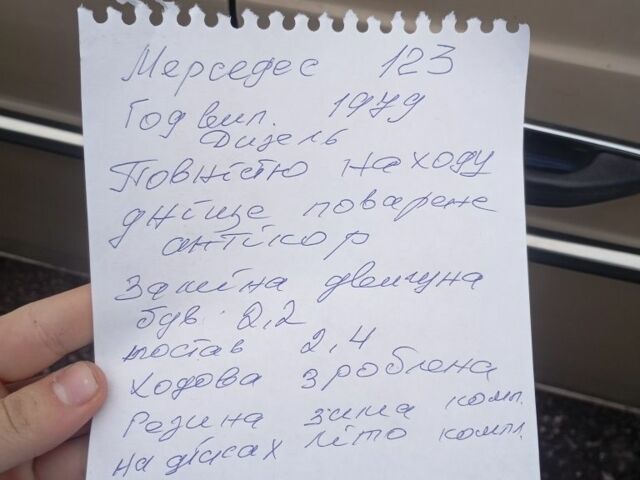 Мерседес 123
Год вип. 1979
Дизель
Повністю на ходу
дніще поварене
антікор
Заміна двигуна
був 2,2
постав 2,4
Ходова зроблена
Резина зима комп.
на дісках літо компл.